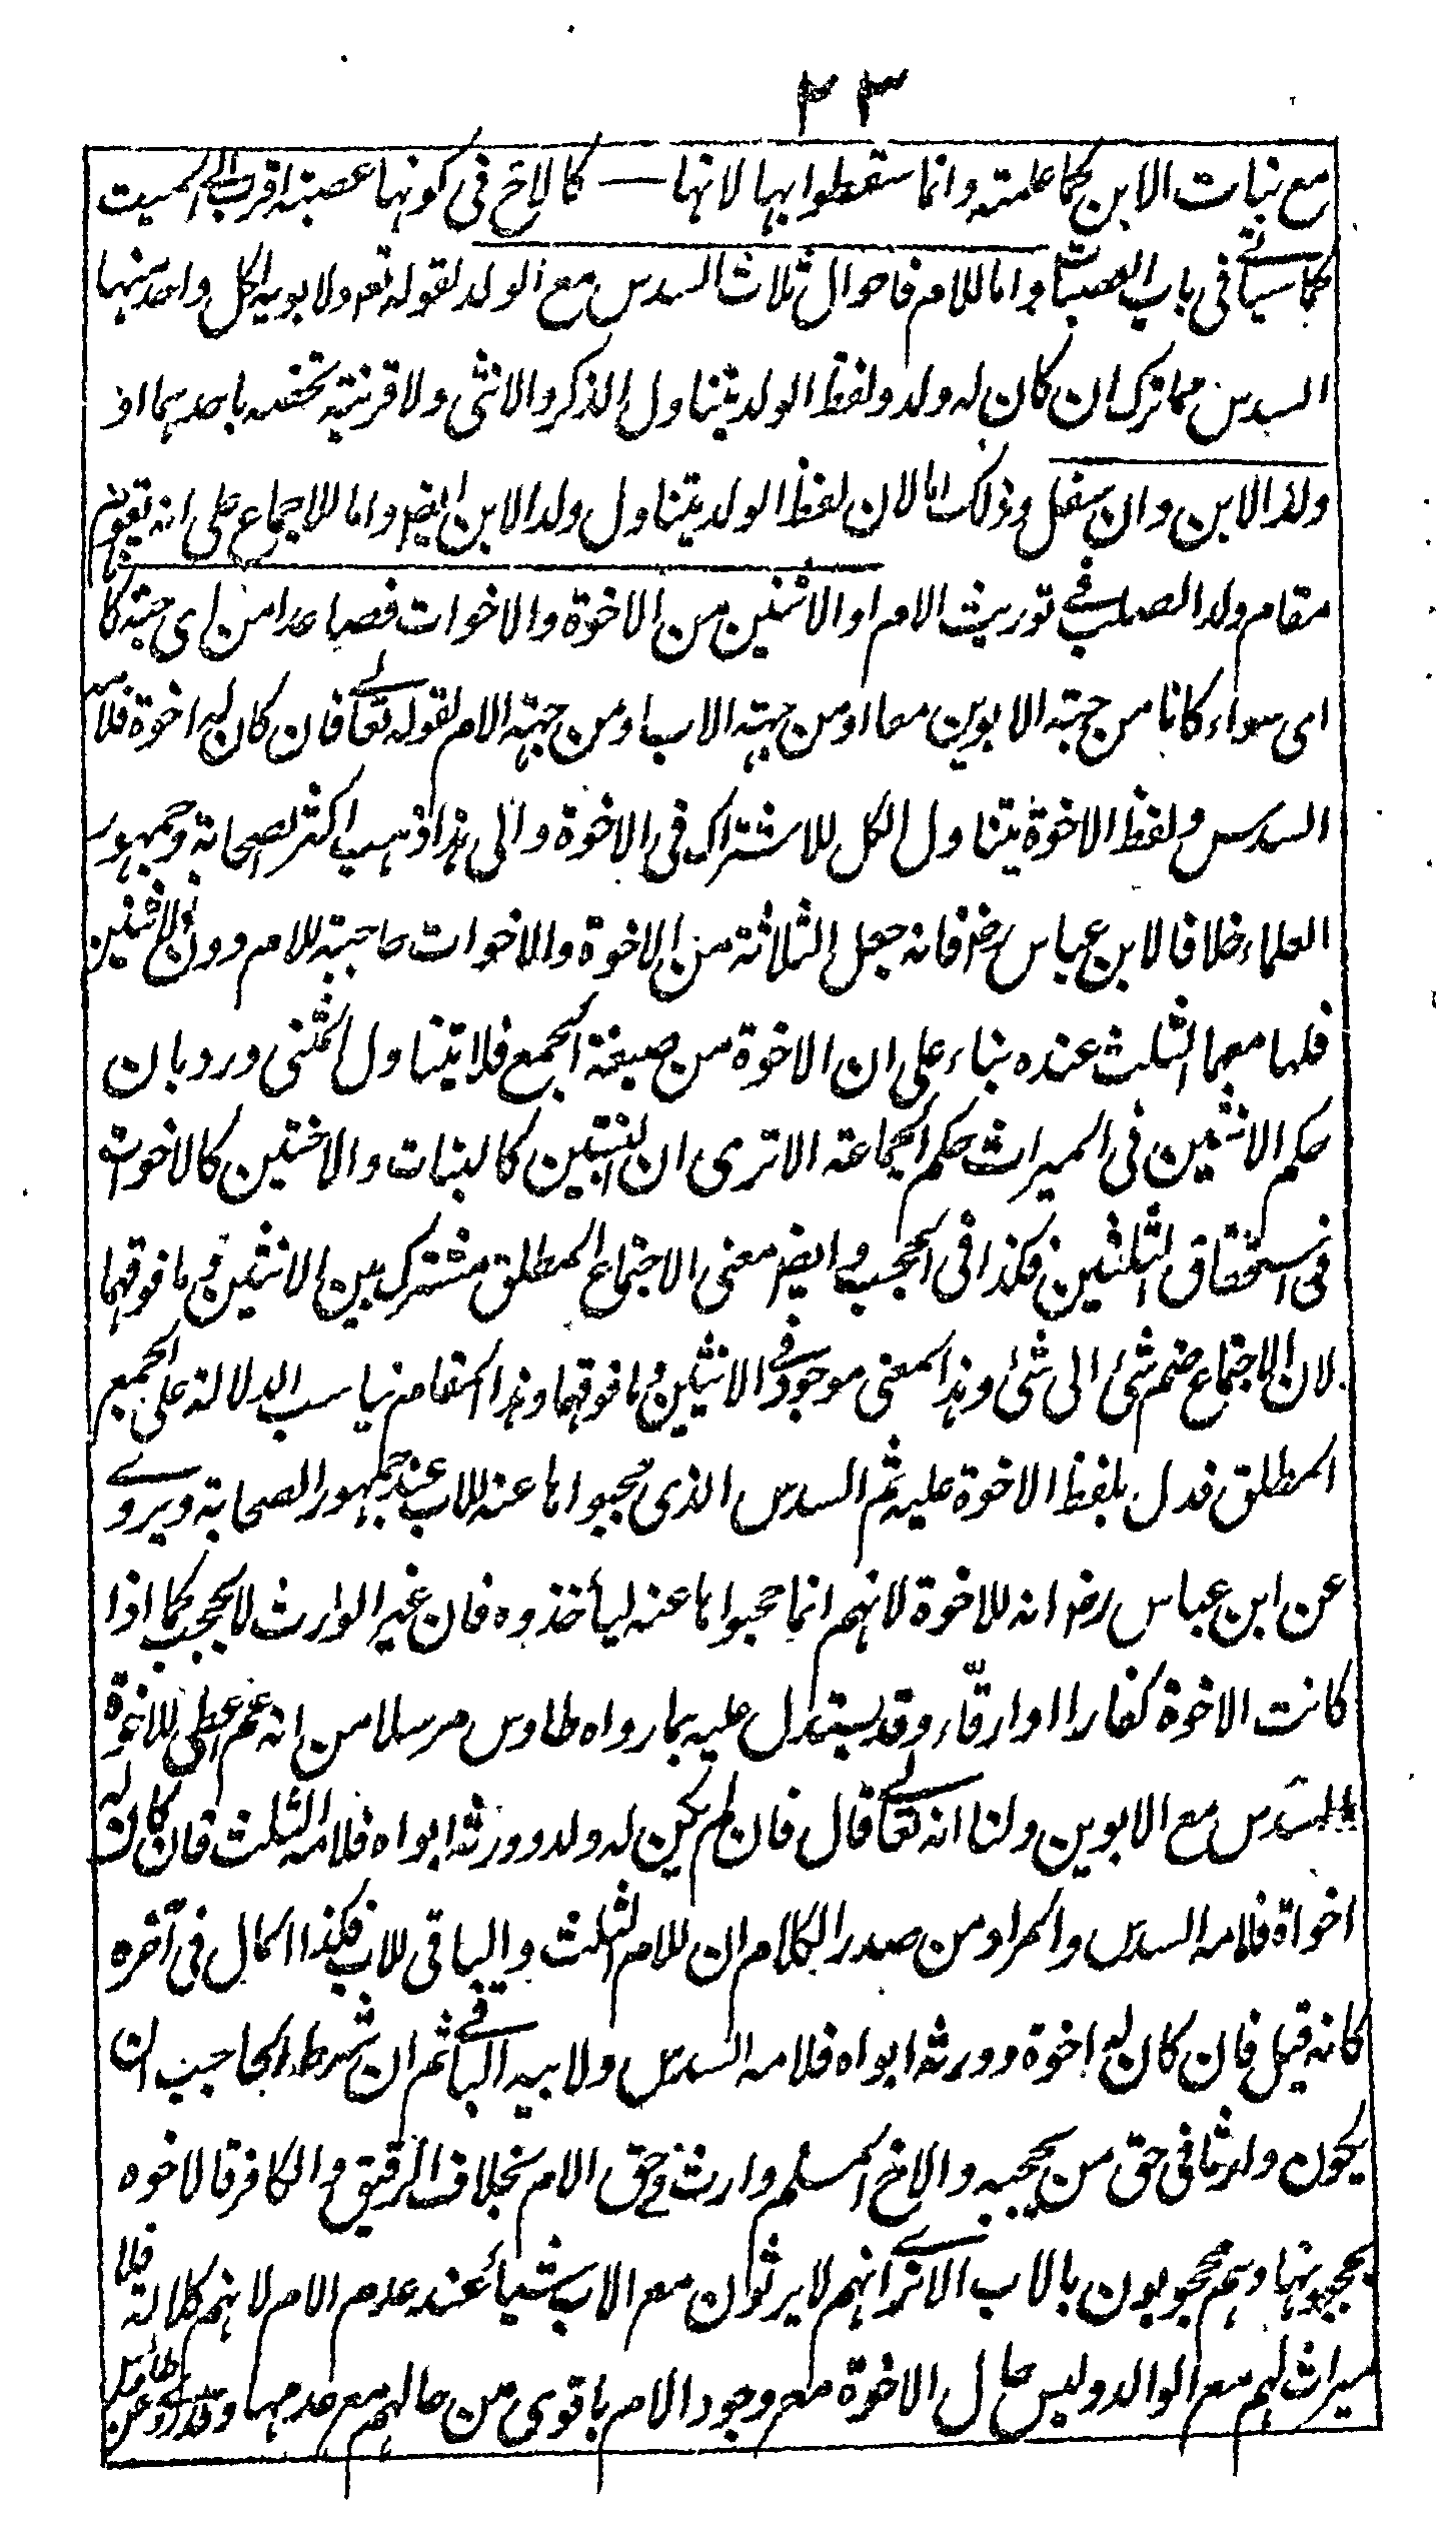 ٢٣
مع بنات الابن كما علمته وانما سقطوا بها لانها — كالاخ فى كونها عصبة اقرب الى الميت
كما سياتى فى باب العصبات واما للام فاحوال ثلاث السدس مع الولد لقوله تعم ولابويه لكل واحد منهما
السدس مما ترك ان كان له ولد ولفظ الولد يتناول الذكر والانثى ولا قرينة تخصه باحدهما او
ولد الابن وان سفل وذلك اما لان لفظ الولد يتناول ولد الابن ايضر واما للاجماع على انه يقوم
مقام ولد الصلب فى توريث الام او الاثنين من الاخوة والاخوات فصاعدا من اى جهة كانا
اى سواء كانا من جهة الابوين معا او من جهة الاب او من جهة الام لقوله تعالى فان كان له اخوة فلامه
السدس ولفظ الاخوة يتناول الكل للاشتراك فى الاخوة والى هذا ذهب اكثر الصحابة وجمهور
العلماء خلافا لابن عباس رضر فانه جعل الثلاثة من الاخوة والاخوات حاجبة للام دون الاثنين
فلها معهما الثلث عنده بناء على ان الاخوة من صيغة الجمع فلا يتناول المثنى ورد بان
حكم الاثنين فى الميراث حكم الجماعة الا ترى ان البنتين كالبنات والاختين كالاخوات
فى استحقاق الثلثين فكذا فى الحجب وايضر معنى الاجتماع المطلق مشترك بين الاثنين وما فوقهما
لان الاجتماع ضم شئ الى شئ وهذا المعنى موجود فى الاثنين وما فوقهما وهذا المقام يناسب الدلالة على الجمع
المطلق فدل بلفظ الاخوة عليه ثم السدس الذى حجبوا ها عنه للاب عند جمهور الصحابة ويروى
عن ابن عباس رضر انه للاخوة لانهم انما حجبوا ها عنه ليأخذوه فان غير الوارث لا يحجب كما اذا
كانت الاخوة كفارا او ارقّاء وقد يستدل عليه بما رواه طاوس مرسلا من انه عم اعطى للاخوة
السدس مع الابوين ولنا انه تعالى قال فان لم يكن له ولد وورثه ابواه فلامه الثلث فان كان له
اخواة فلامه السدس والمراد من صدر الكلام ان للام الثلث والباقى للاب فكذا الحال فى آخره
كانه قيل فان كان له اخوة وورثه ابواه فلامه السدس ولابيه الباقى ثم ان شرط الحاجب ان
يكون وارثا فى حق من يحجبه والاخ المسلم وارث فى حق الام بخلاف الرقيق والكافر فالاخوه
يحجبونها وهم محجوبون بالاب الا ترى انهم لا يرثون مع الاب شيأ عند عدم الام لانهم كلالة فلا
ميراث لهم مع الوالد وليس حال الاخوة مع وجود الام باقوى من حالهم مع عدمها وقد روى عن طاوس